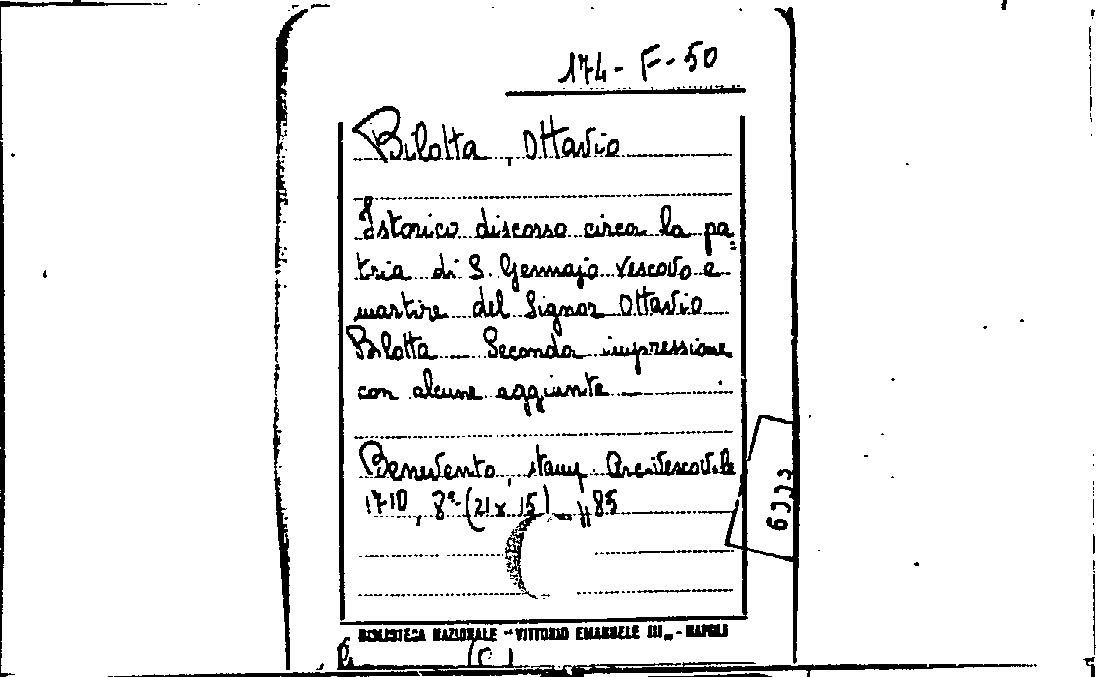 174 - F - 50
Bilotta, Ottavio
Istorico discorso circa la pa=
tria di S. Gennajo vescovo e
martire del Signor Ottavio
Bilotta _ Seconda impressione
con alcune aggiunte _
Benevento, stamp. Arcivescovile
1710, 8º (21 x 15) _ 85
BIBLIOTECA NAZIONALE "VITTORIO EMANUELE III" - NAPOLI